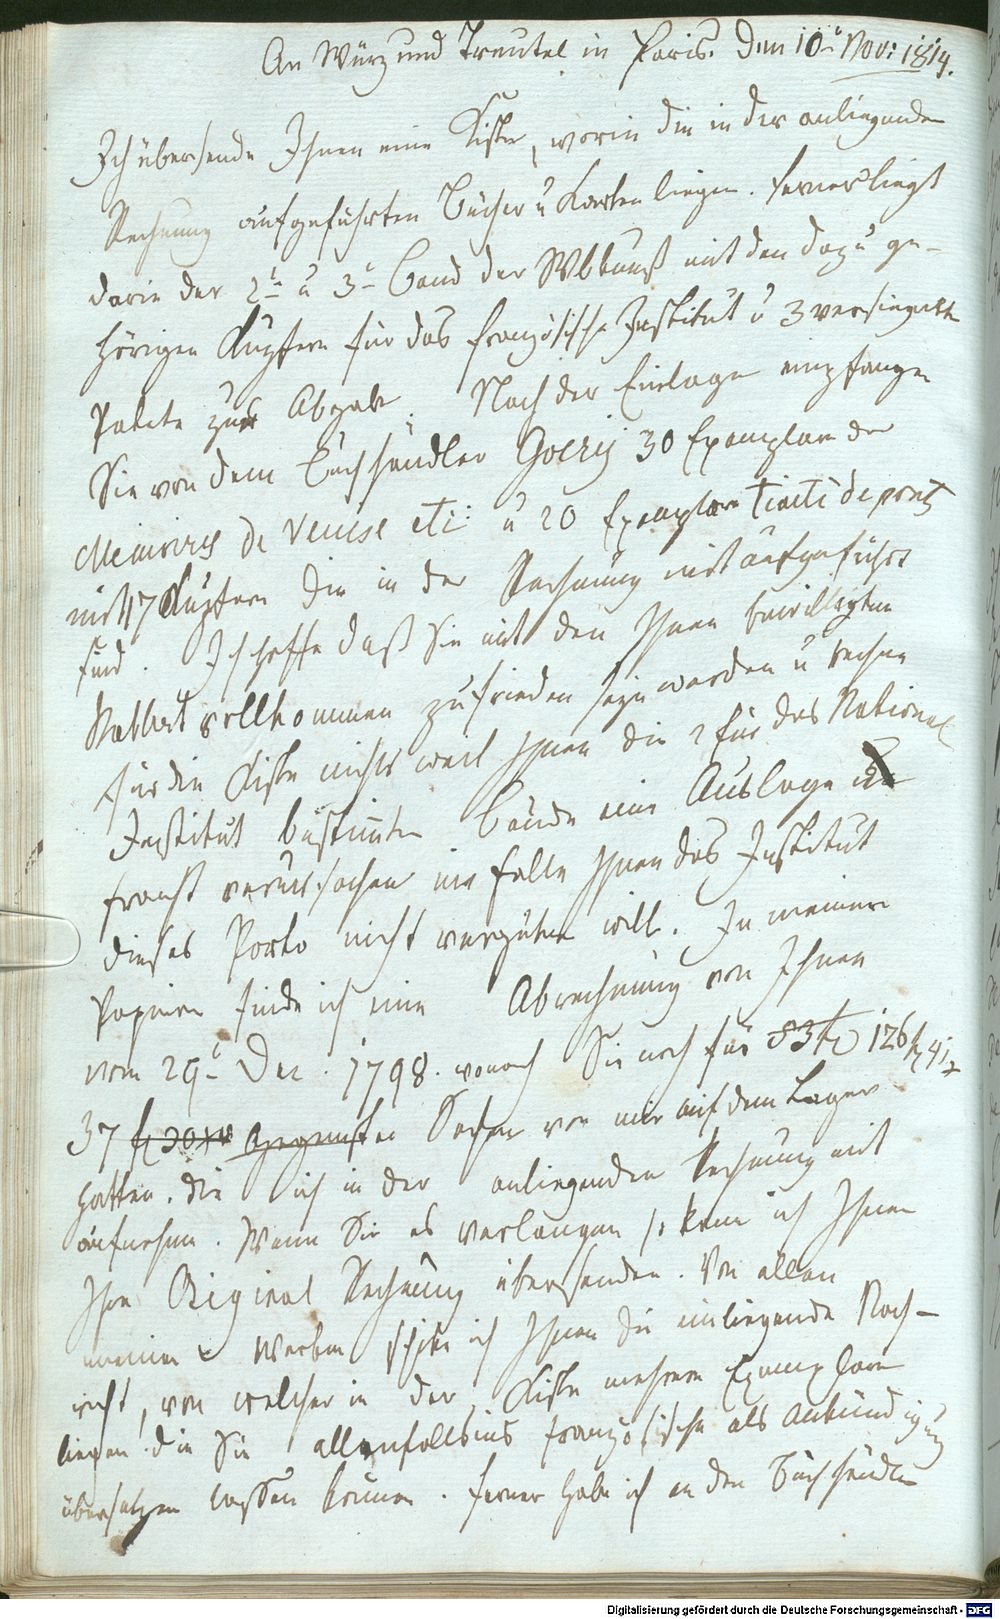 An Würz und Treutel in Paris. Den 10t Nov: 1814.
Ich übersende Ihnen eine Kiste, worin die in der anliegenden
Rechnung aufgeführten Bücher u Karten liegen. Ferner liegt
darin der 2te u 3te Band der Wbkunst mit den dazu ge-
hörigen Kupfern für das französische Institut u 3 versiegelte
Pakete zur Abgabe. Nach der Einlage empfangen
Sie von dem Buchhändler Goeury 30 Exemplare der
Memoires de Venise etc: u 20 Exemplare Traité de ponts
mit 17 Kupfern die in der Rechnung mit aufgeführt
sind. Ich hoffe daß Sie mit den Ihnen bewilligten
Rabbat vollkommen zufrieden sein werden u rechne
für die Kiste nichts weil Ihnen die 2 für das National
Institut bestimten Bände eine Auslage an
Fracht verursachen im Falle Ihnen das Institut
dieses Porto nicht vergüten will. In meinen
Papieren finde ich eine Abrechnung von Ihnen
vom 29t Dec. 1798. wonach Sie noch für
37 Sachen von mir auf dem Lager
hatten. die ich in der anliegenden Rechnung mit
aufnehme. Wenn Sie es verlangen so kann ich Ihnen
Ihre Original Rechnung übersenden. Von allen
meinen Werken schike ich Ihnen die einliegende Nach-
richt, von welcher in der Kiste mehrere Exemplare
liegen die Sie allenfalls ins französische als Ankündigung
übersetzen lassen können. Ferner habe ich an den Buchhändler
Digitalisierung gefördert durch die Deutsche Forschungsgemeinschaft - DFG